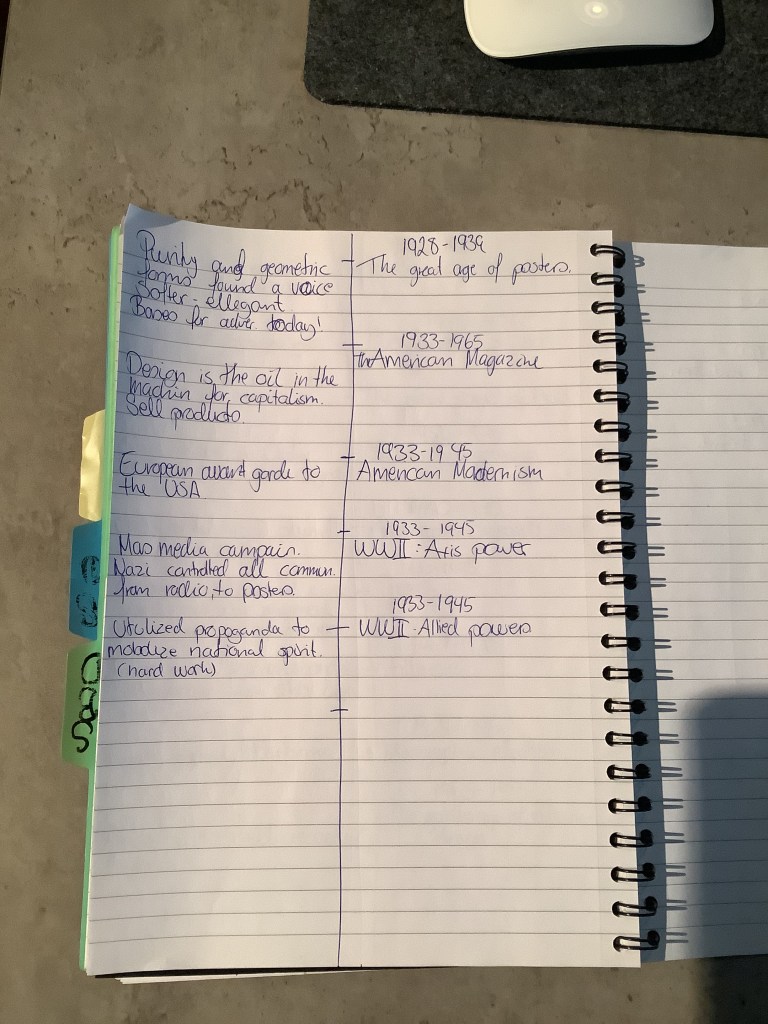 1928-1939
Purity and geometric
forms found a voice
Softer - ellegant
Bases for adver today!
The great age of posters.
1933-1965
The American Magazine
Design is the oil in the
machin for capitalism.
Sell products.
1933-1945
American Modernism
European avant garde to
the USA
1933-1945
WWII: Axis power
Mas media campain.
Nazi controlled all commun.
from radio, to posters.
1933-1945
WWII: Allied powers
Utulized propoganda to
mobolize national spirit.
(hard work)